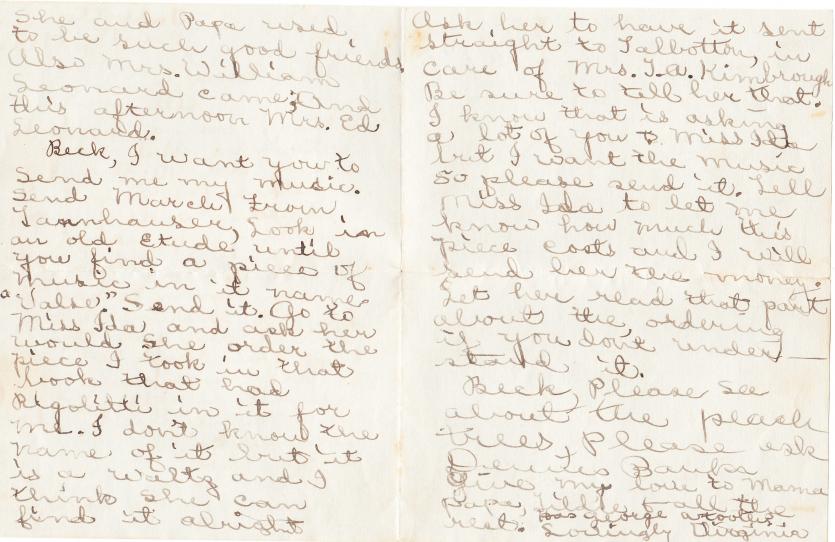 she and Papa used
to be such good friends.
Also Mrs. William
Leonard came. And
this afternoon Mrs. Ed
Leonard.
Beck, I want you to
send me my music.
Send March from
Tannhauser, Look in
an old Etude until
you find a piece of
music in it name
a "Valse." Send it. Go to
Miss Ida and ask her
would she order the
piece I took in that
book that had
Rigolitti in it for
me. I don't know the
name of it but it
is a waltz and I
think she can
find it alright
Ask her to have it sent
straight to Talbotton, in
care of Mrs. T.A. Kimbrough
Be sure to tell her that.
I know that is asking
a lot of you & Miss Ida
but I want the music
so please send it. Tell
Miss Ida to let me
know how much this
piece costs and I will
send her the money.
Let her read that part
about the ordering
if you don't under—
stand it.
Beck, Please see
about the peach
trees, Please ask
Dennis Banks
Give my love to Mama
Papa, & all the
rest. was George
Lovingly Virginia